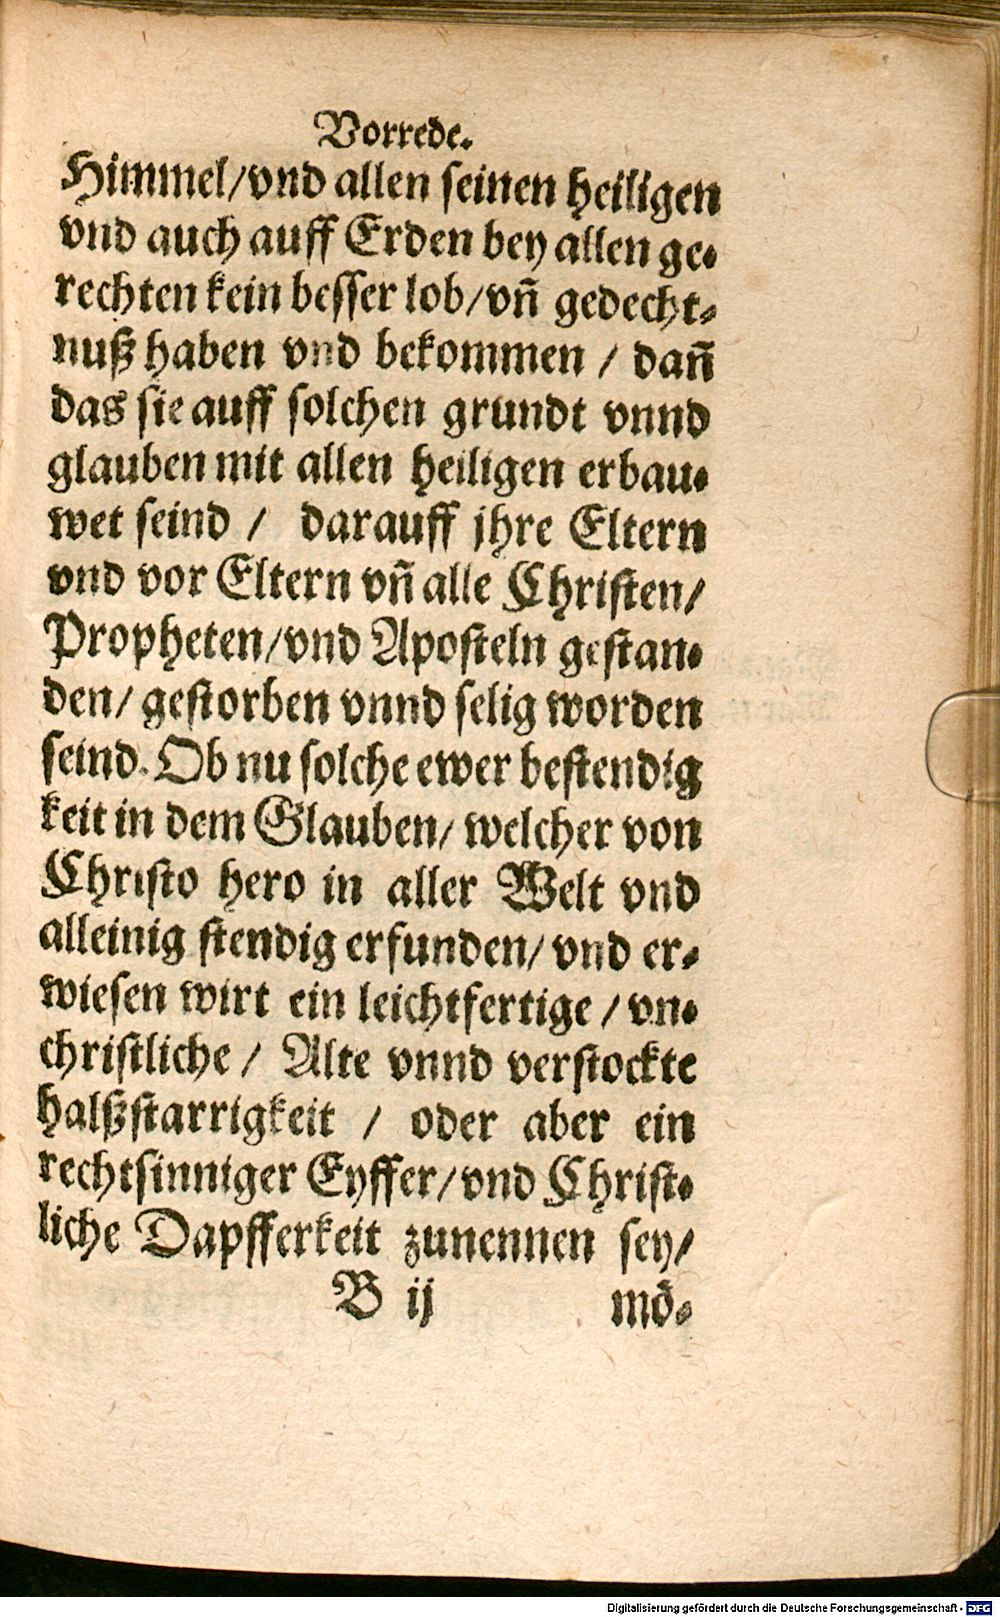 Vorrede.
Himmel/vnd allen seinen heiligen
vnd auch auff Erden bey allen ge-
rechten kein besser lob/vñ gedecht-
nuß haben vnd bekommen / dañ
das sie auff solchen grundt vnnd
glauben mit allen heiligen erbau-
wet seind / darauff jhre Eltern
vnd vor Eltern vñ alle Christen/
Propheten/vnd Aposteln gestan-
den/ gestorben vnnd selig worden
seind. Ob nu solche ewer bestendig
keit in dem Glauben/ welcher von
Christo hero in aller Welt vnd
alleinig stendig erfunden/ vnd er-
wiesen wirt ein leichtfertige / vn-
christliche / Alte vnnd verstockte
halßstarrigkeit / oder aber ein
rechtsinniger Eyffer/vnd Christ-
liche Dapfferkeit zunennen sey/
B ij mö-
Digitalisierung gefördert durch die Deutsche Forschungsgemeinschaft - DFG